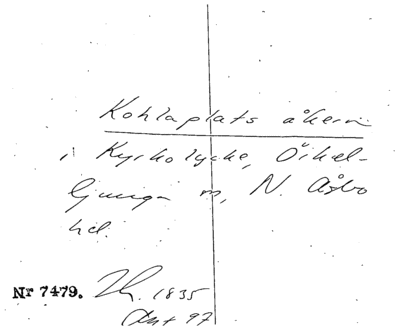 Kohlaplats åkern
i Kyrkolycke, Örkel-
ljunga m, N. Åsbo
hd.
Nr 7479. Th. 1835
Ant 97